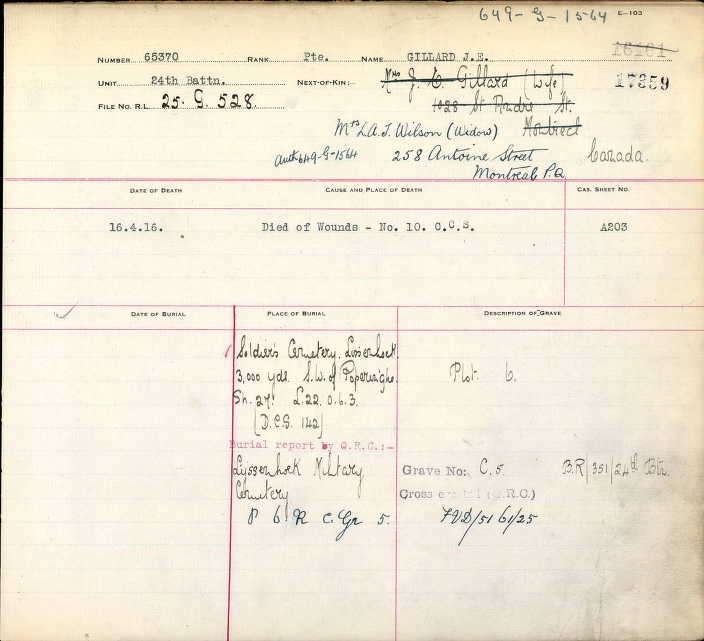 649-G-1564 E-103
NUMBER 65370 RANK Pte. NAME GILLARD J.E. 16101
UNIT 24th Battn. NEXT-OF-KIN:- Mrs J. E. Gillard (Wife) 17359
FILE NO. R.L. 25. G. 528. 1028 St Andre St.
Mrs L.A.J. Wilson (Widow) Montreal
Auth 649-G-1564 258 Antoine Street Canada.
Montreal P.Q.
DATE OF DEATH CAUSE AND PLACE OF DEATH CAS. SHEET NO.
16.4.16. Died of Wounds - No. 10. C.C.S. A203
DATE OF BURIAL PLACE OF BURIAL DESCRIPTION OF GRAVE
Soldier's Cemetery, Lissenhoek.
3,000 yds. S.W. of Poperinghe. Plot. 6.
Sh. 27. L.22. D.6.3.
(D.C.S. 142)
Burial report by G.R.C.:-
Lyssenhoek Military Grave No: C.5. B.R/351/24th Btn.
Cemetery Cross erected (G.R.C.)
P 6 R C. Gr 5.